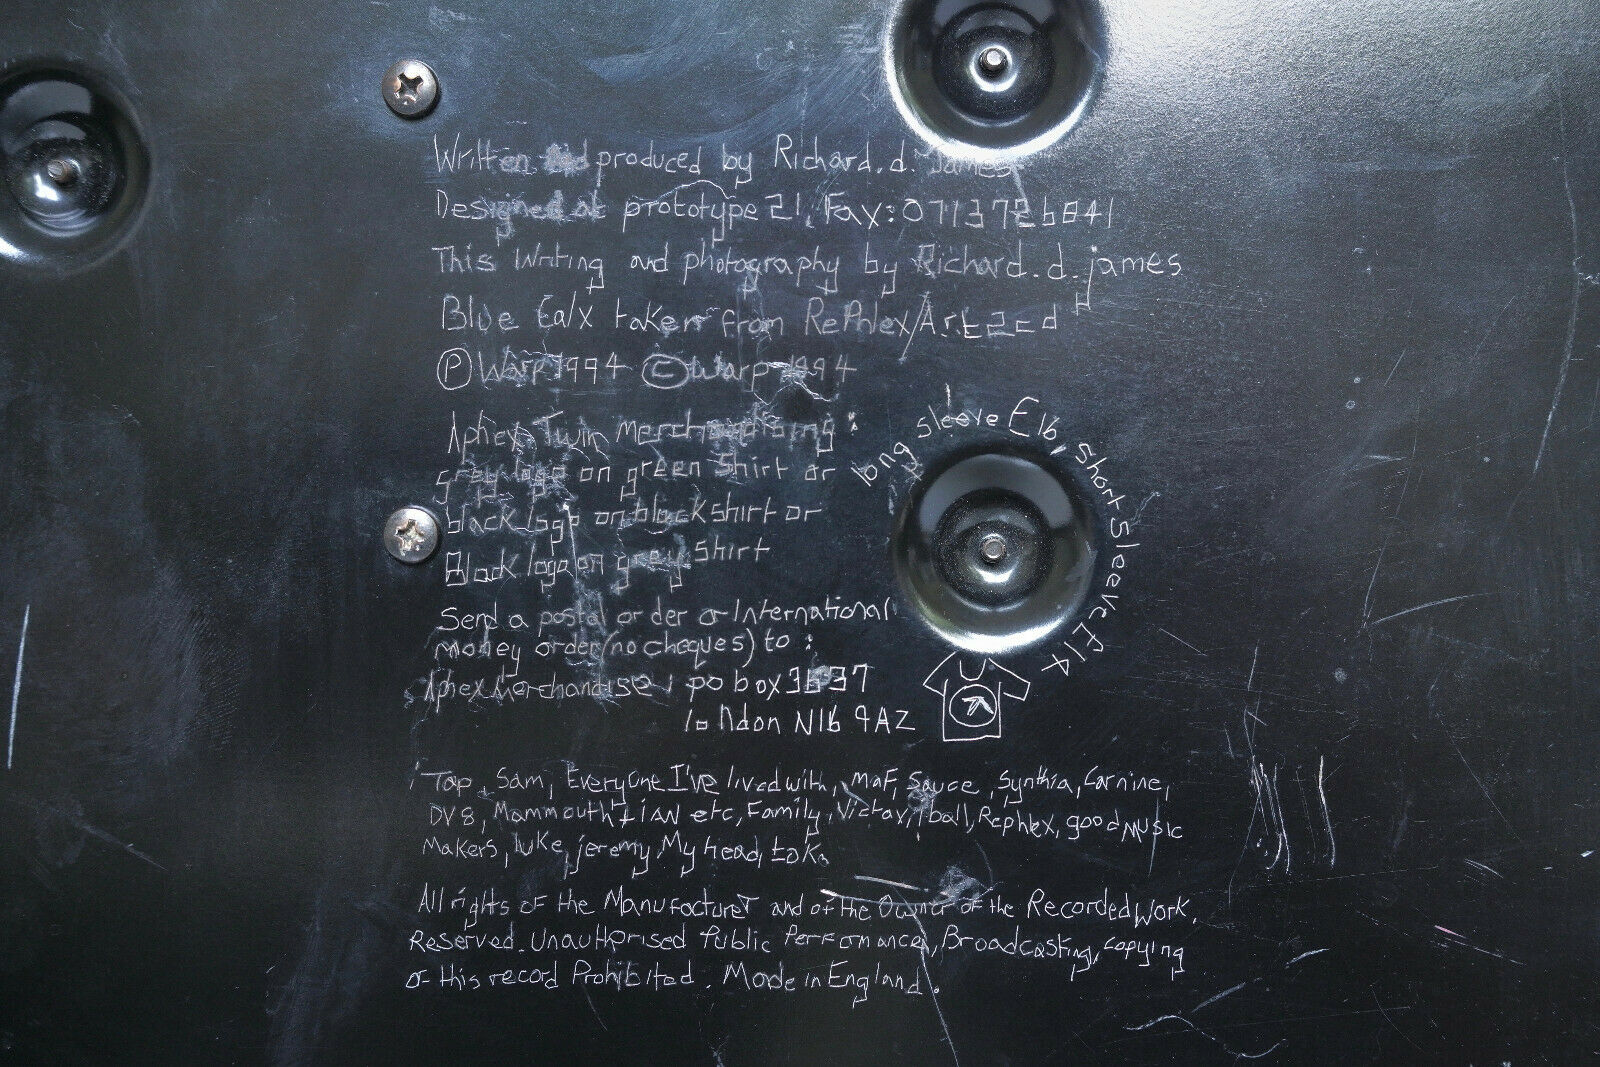 Written and produced by Richard. d. James
Designed at prototype 21, Fax: 0713726841
This Writing and photography by Richard. d. james
Blue Calx taken from RePhlex/Art 2cd
Ⓟ Warp 1994 © Warp 1994
Aphex Twin merchandising:
grey logo on green Shirt or
black logo on black shirt or
Black logo on grey shirt
long sleeve £16, short Sleeve £14
Send a postal order or International
money order (no cheques) to:
Aphex Merchandise, po box
london N16 9AZ
Tap, Sam, Everyone I've lived with, Maf, Sauce, Synthia, Carnine,
DV8, Mammouth, etc, Family, ball, Rephlex, good MUSIC
Makers, luke, jeremy, My head,
All rights of the Manufacturer and of the Owner of the Recorded Work.
Reserved. Unauthorised Public Performance, Broadcasting, copying
of this record Prohibited. Made in England.